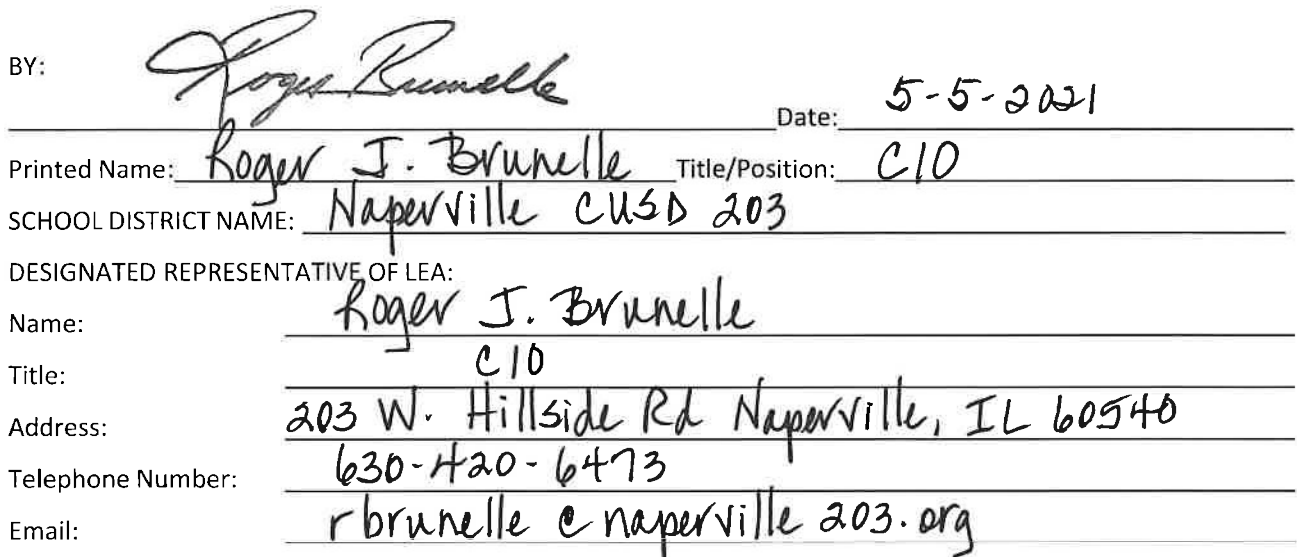 BY: Roger Brunelle Date: 5-5-2021
Printed Name: Roger J. Brunelle Title/Position: CIO
SCHOOL DISTRICT NAME: Naperville CUSD 203
DESIGNATED REPRESENTATIVE OF LEA:
Name: Roger J. Brunelle
Title: CIO
Address: 203 W. Hillside Rd Naperville, IL 60540
Telephone Number: 630-420-6473
Email: rbrunelle @ naperville 203.org